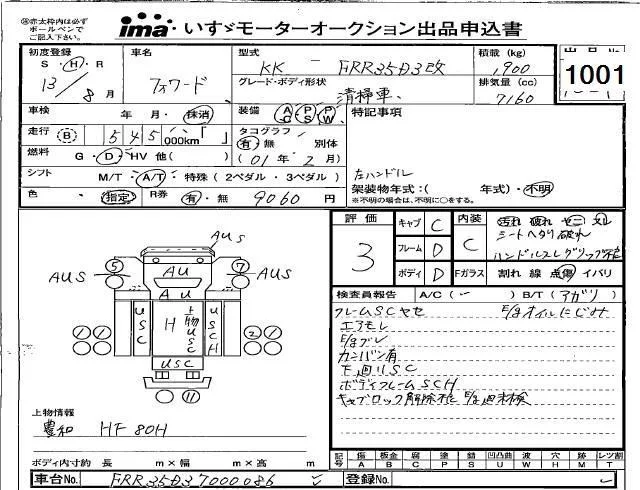 ※赤太枠内は必ず
ボールペンで
ご記入下さい。
ima いすゞモーターオークション出品申込書
初度登録
S・H・R
13/8月
車名
フォワード
型式
KK-FRR35D3改
積載(kg)
1,900
グレード・ボディ形状
清掃車
排気量(cc)
7160
1001
車検 年・月・抹消
装備 AC PS PW
特記事項
走行 B 545,000km
タコグラフ
有・無 別体
(01年・2月)
燃料 G・D・HV 他( )
左ハンドル
シフト M/T・A/T・特殊(2ペダル・3ペダル)
架装物年式:( 年式)・不明
※不明の場合は、不明に○をする。
色 指定 R券 有・無 9060円
評価
3
キャブ C
フレーム D
ボディ D
内装
C
Fガラス
汚れ 破れ
シートヘタリ 破れ
割れ 線 点傷 イバリ
AUS
AUS
AUS
5
7
AU
AU
USC
H
上物USC
USCH
USC
11
検査員報告 A/C( ) B/T(アガリ)
フレームSCヤセ E/gオイルにじみ
エアモレ
E/gブレ
カンバン有
下廻りSC
ボディフレームSCH
キャブロック解除不 E/g廻未検
上物情報
豊和 HF80H
ボディ内寸約 長 m×幅 m×高 m
記号 傷A 板金B 腐C 塗P 錆S 凹凸曲U 波W 穴H 跡M レツ割T
車台No. FRR35D37000086
登録No.